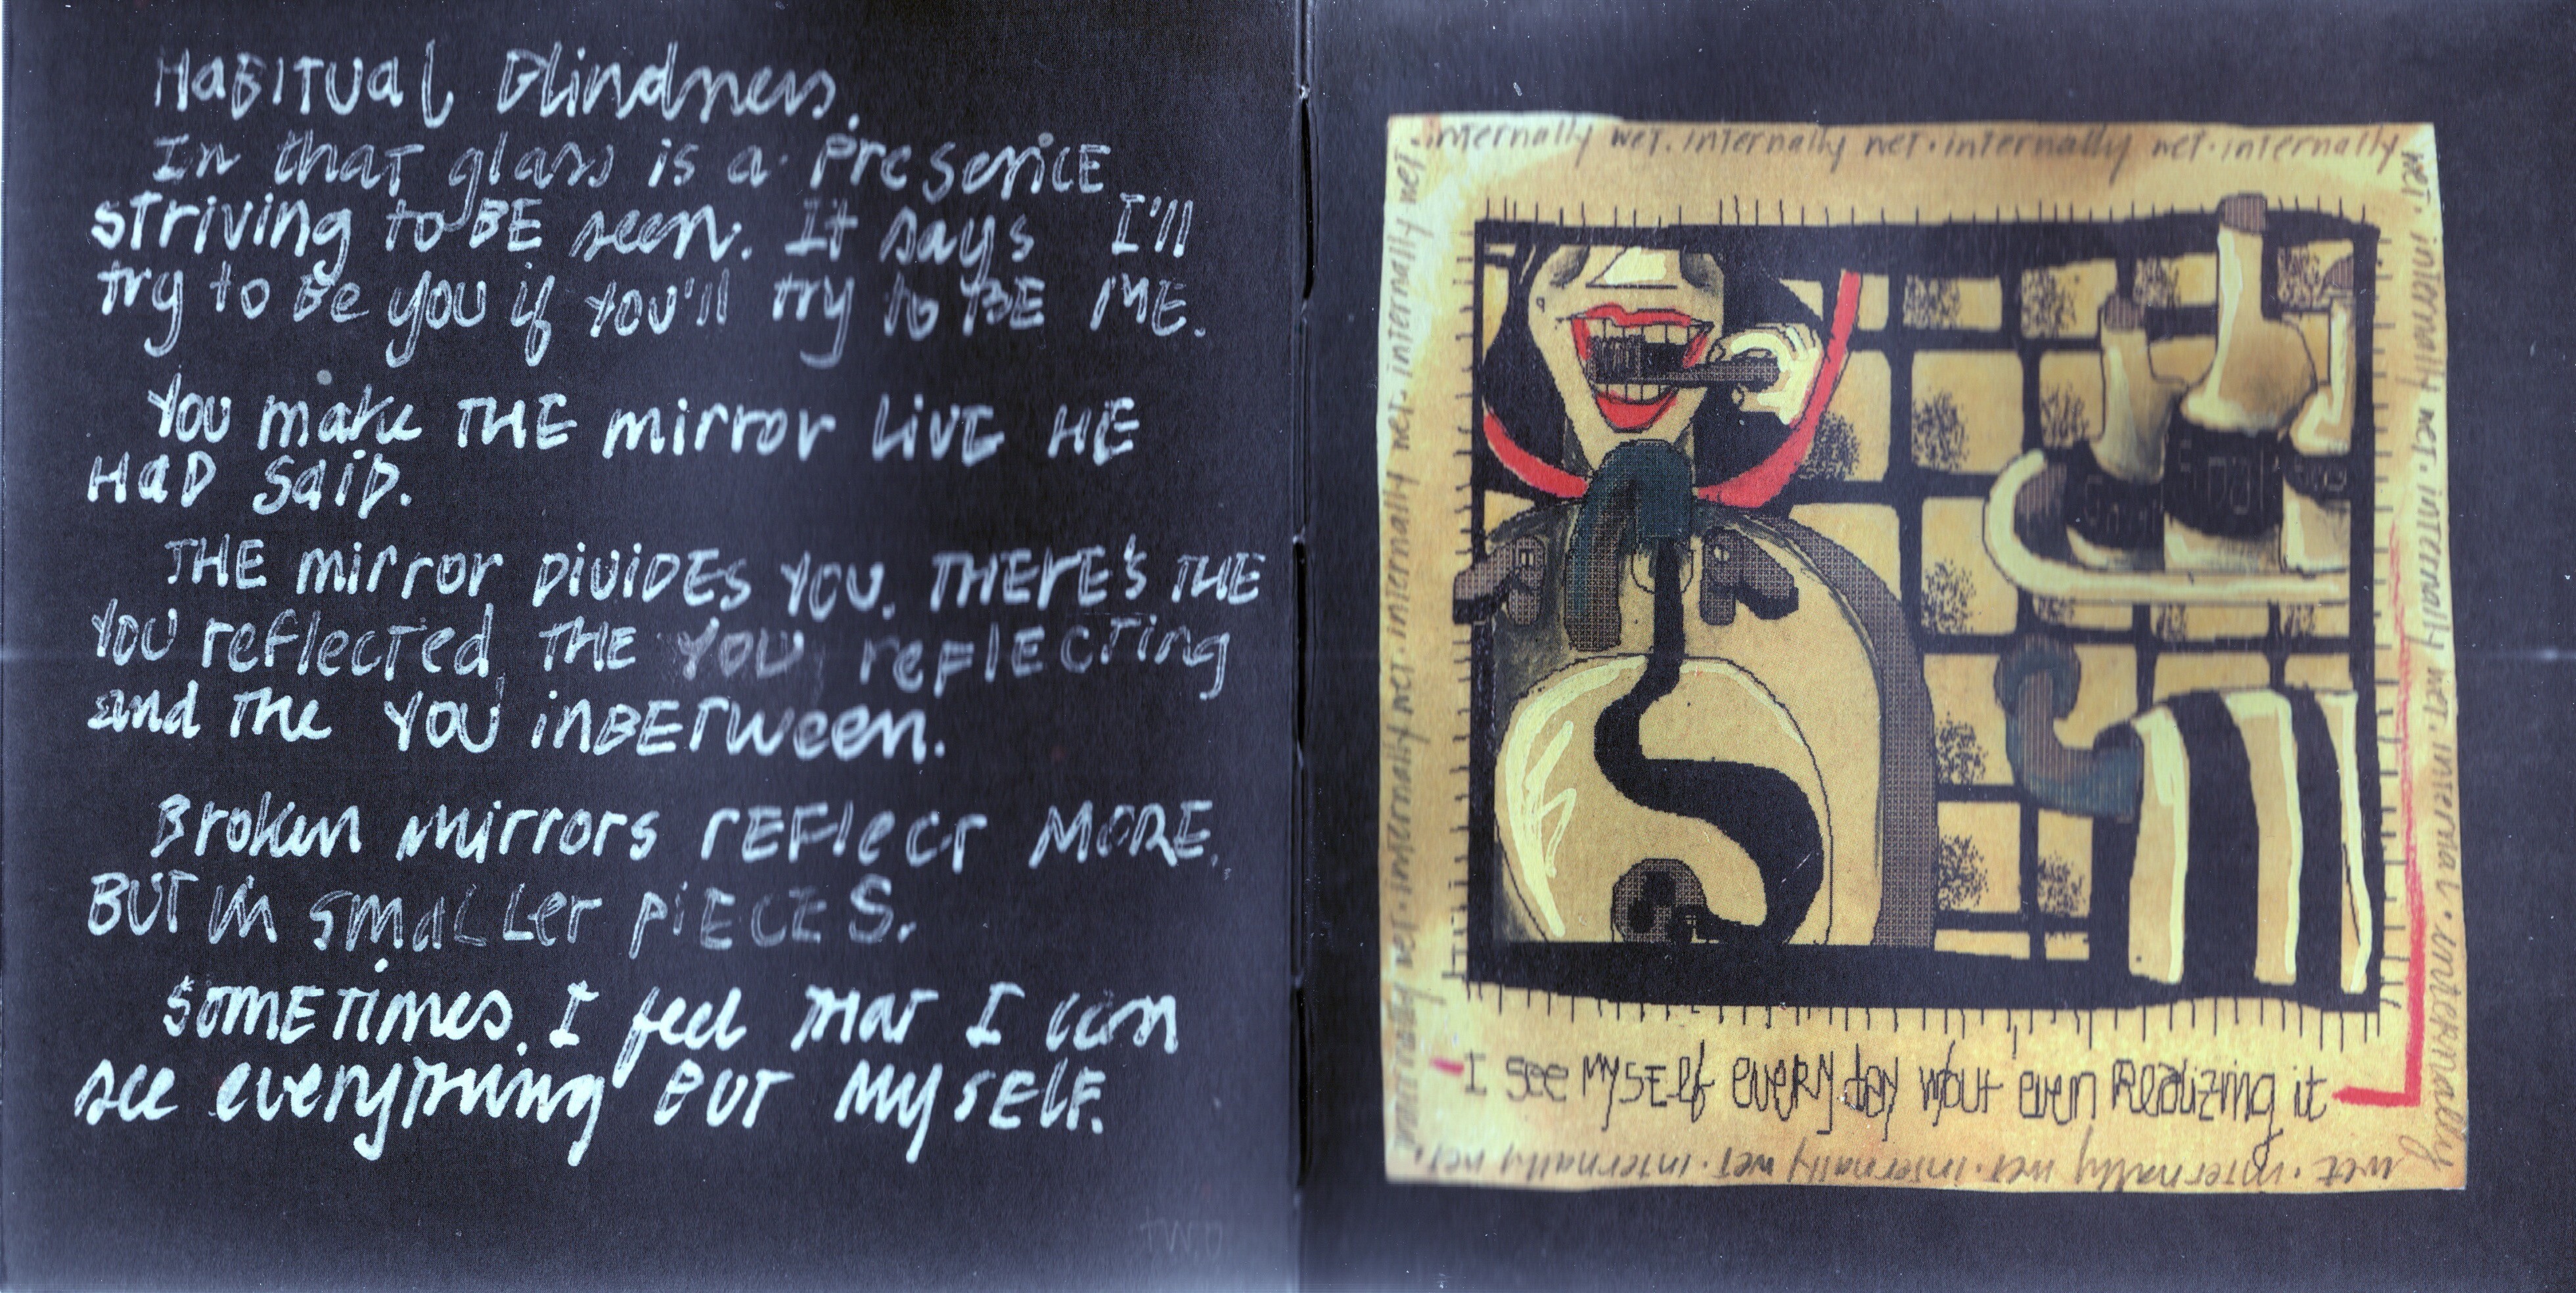 HaBITUal Blindness.
In that glass is a Presence
striving to BE seen. It says I'll
try to Be you if you'll try to BE ME.
You make THE mirror live HE
HaD SaiD.
THE mirror DiviDEs YOU. THErE's THE
YOU reflected, THE YOU reFlECTing
and The YOU inBETween.
Broken mirrors rEFlecT MORE,
BUT in smaLLer piECES.
SOMETimes, I feel THaT I can
see everyTHing BUT MYSElF.
internally wet. internally wet. internally wet. internally
wet. internally wet. internally wet. internally wet. internal. internally
wet. internally wet. internally wet. internally wet. internally wet.
internally wet. internally wet. internally wet. internally wet. internally wet.
I see MYSElf evERY day w/out even Realizing it